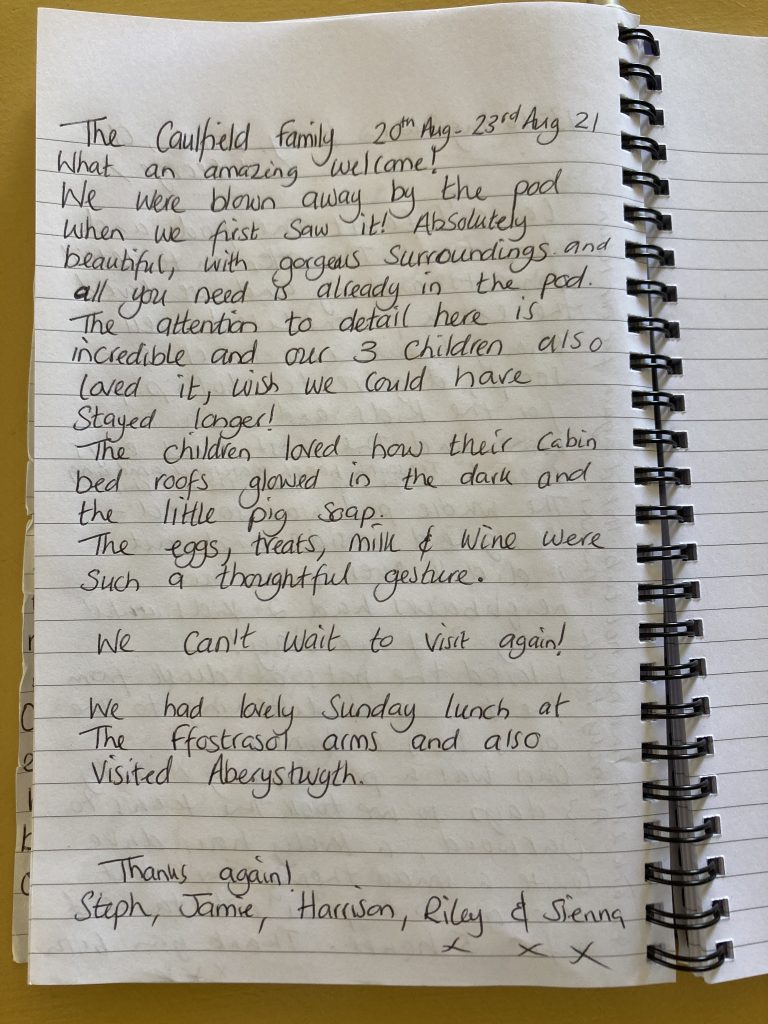 The Caulfield family 20th Aug - 23rd Aug 21
What an amazing welcome!
We were blown away by the pod
when we first saw it! Absolutely
beautiful, with gorgeous surroundings and
all you need is already in the pod.
The attention to detail here is
incredible and our 3 children also
loved it, wish we could have
stayed longer!
The children loved how their cabin
bed roofs glowed in the dark and
the little pig soap.
The eggs, treats, milk & wine were
such a thoughtful gesture.
We can't wait to visit again!
We had lovely Sunday lunch at
The ffostrasol arms and also
visited Aberystwyth.
Thanks again!
Steph, Jamie, Harrison, Riley & Sienna
x x x